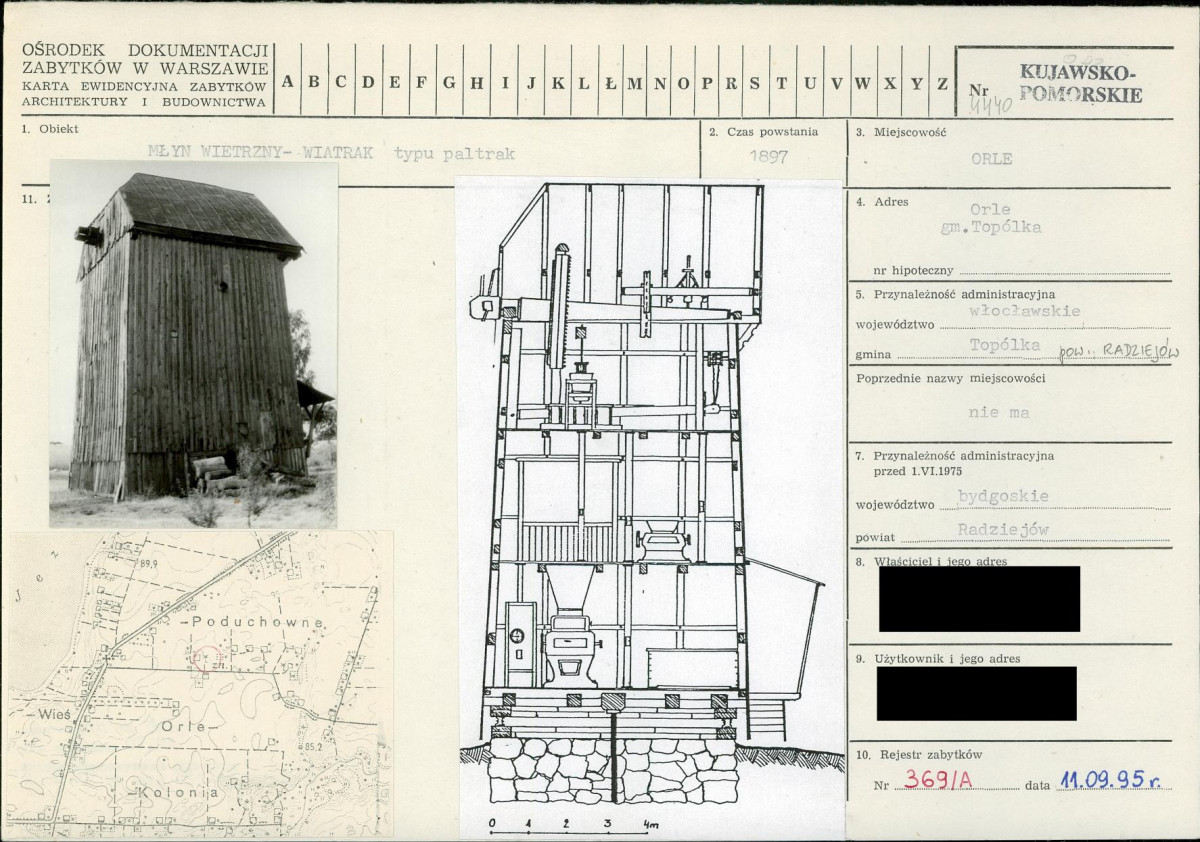 OŚRODEK DOKUMENTACJI
ZABYTKÓW W WARSZAWIE
KARTA EWIDENCYJNA ZABYTKÓW
ARCHITEKTURY I BUDOWNICTWA
A B C D E F G H I J K L Ł M N O P R S T U V W X Y Z
Nr 4440
KUJAWSKO-
POMORSKIE
1. Obiekt
MŁYN WIETRZNY- WIATRAK typu paltrak
2. Czas powstania
1897
3. Miejscowość
ORLE
4. Adres
Orle
gm.Topólka
nr hipoteczny
5. Przynależność administracyjna
włocławskie
województwo
gmina Topólka pow.: RADZIEJÓW
Poprzednie nazwy miejscowości
nie ma
7. Przynależność administracyjna
przed 1.VI.1975
województwo bydgoskie
powiat Radziejów
8. Właściciel i jego adres
9. Użytkownik i jego adres
10. Rejestr zabytków
Nr 369/A data 11.09.95 r.
11.
J e z
89,9
Poduchowne
zn.
Wieś
Orle
85,2
Kolonia
0 1 2 3 4m